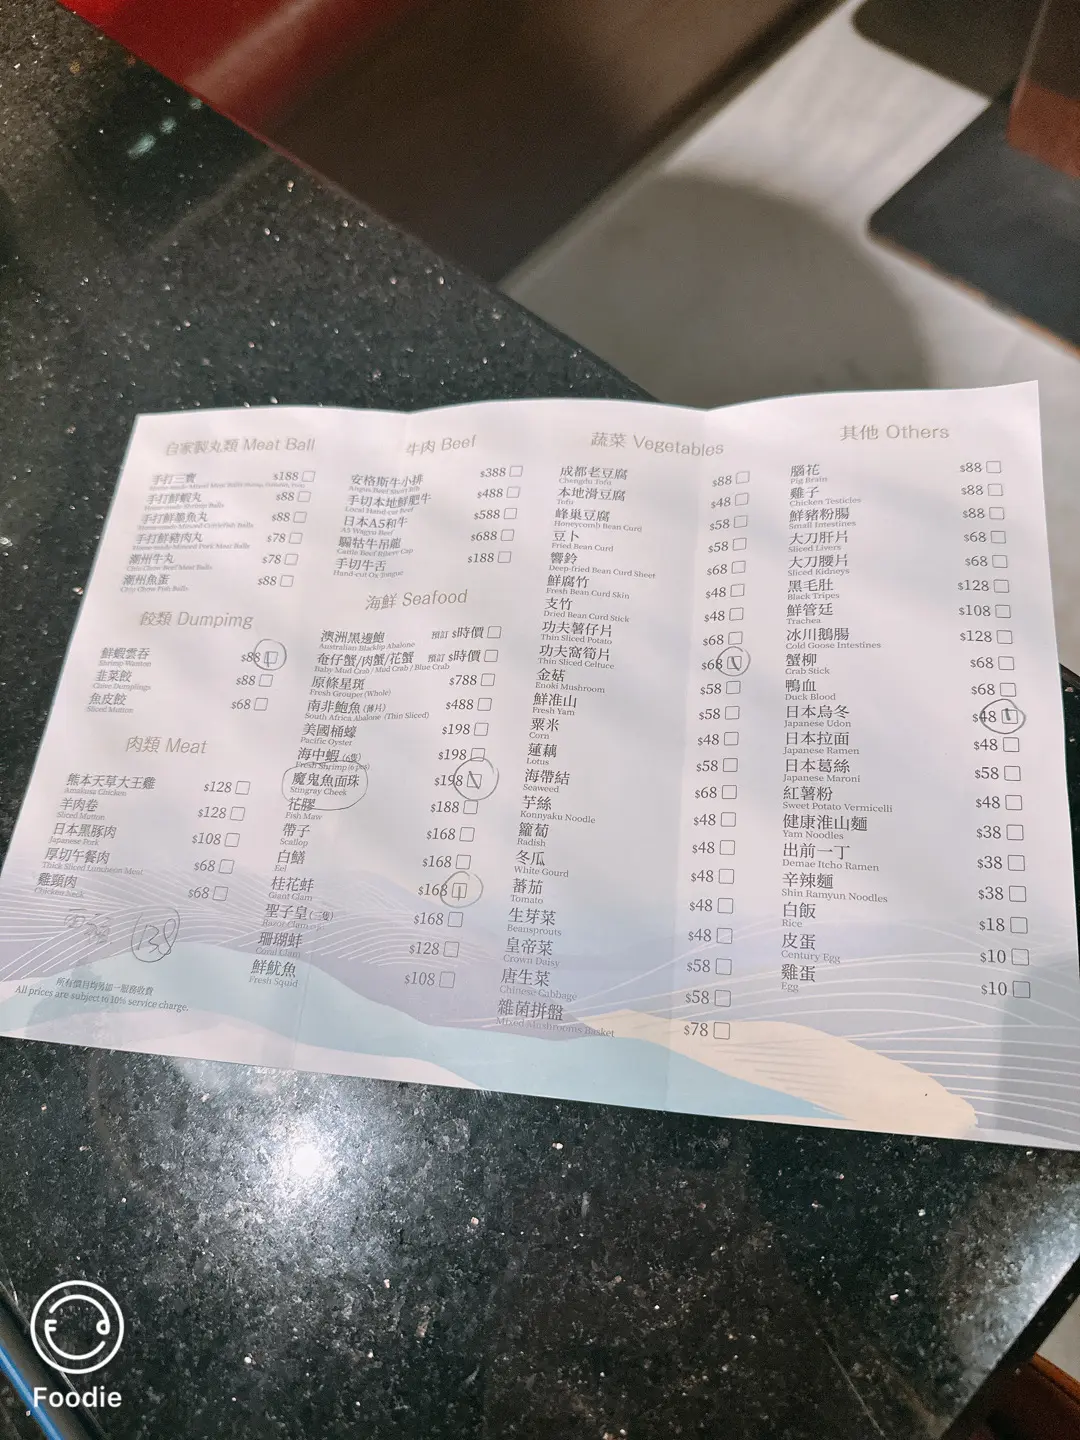 自家製丸類 Meat Ball
手打三寶 $188
手打鮮蝦丸 $88
Home-made Shrimp Balls
手打鮮墨魚丸 $88
Home-made Minced Cuttlefish Balls
手打鮮豬肉丸 $78
Home-made Minced Pork Meat Balls
潮州牛丸 $78
Chiu Chow Beef Meat Balls
潮州魚蛋 $88
Chiu Chow Fish Balls
餃類 Dumpimg
鮮蝦雲吞 $88
Shrimp Wanton
韭菜餃 $88
Chive Dumplings
魚皮餃 $68
Sliced Mutton
肉類 Meat
熊本天草大王雞 $128
Amakusa Chicken
羊肉卷 $128
Sliced Mutton
日本黑豚肉 $108
Japanese Pork
厚切午餐肉 $68
Thick Sliced Luncheon Meat
雞頸肉 $68
Chicken Neck
138
所有價目均另加一服務收費
All prices are subject to 10% service charge.
牛肉 Beef
安格斯牛小排 $388
Angus Beef Short Rib
手切本地鮮肥牛 $488
Local Hand-cut Beef
日本A5和牛 $588
A5 Wagyu Beef
騸牯牛吊龍 $688
Cattle Beef Ribeye Cap
手切牛舌 $188
Hand-cut Ox Tongue
海鮮 Seafood
澳洲黑邊鮑 預訂 $時價
Australian Blacklip Abalone
奄仔蟹/肉蟹/花蟹 預訂 $時價
Baby Mud Crab / Mud Crab / Blue Crab
原條星斑 $788
Fresh Grouper (Whole)
南非鮑魚(薄片) $488
South Africa Abalone (Thin Sliced)
美國桶蠔 $198
Pacific Oyster
海中蝦(6隻) $198
Fresh Shrimp (6 pcs)
魔鬼魚面珠 $198
Stingray Cheek
花膠 $188
Fish Maw
帶子 $168
Scallop
白鱔 $168
Eel
桂花蚌 $168
Giant Clam
聖子皇(三隻) $168
珊瑚蚌 $128
Coral Clam
鮮魷魚 $108
Fresh Squid
蔬菜 Vegetables
成都老豆腐 $88
Chengdu Tofu
本地滑豆腐 $48
Tofu
蜂巢豆腐 $58
Honeycomb Bean Curd
豆卜 $58
Fried Bean Curd
響鈴 $68
Deep-fried Bean Curd Sheet
鮮腐竹 $48
Fresh Bean Curd Skin
支竹 $48
Dried Bean Curd Stick
功夫薯仔片 $68
Thin Sliced Potato
功夫窩筍片 $68
Thin Sliced Celtuce
金菇 $58
Enoki Mushroom
鮮准山 $58
Fresh Yam
粟米 $48
Corn
蓮藕 $58
Lotus
海帶結 $68
Seaweed
芋絲 $48
Konnyaku Noodle
籮蔔 $48
Radish
冬瓜 $48
White Gourd
蕃茄 $48
Tomato
生芽菜 $48
Beansprouts
皇帝菜 $58
Crown Daisy
唐生菜 $58
Chinese Cabbage
雜菌拼盤 $78
Mixed Mushrooms Basket
其他 Others
腦花 $88
Pig Brain
雞子 $88
Chicken Testicles
鮮豬粉腸 $88
Small Intestines
大刀肝片 $68
Sliced Livers
大刀腰片 $68
Sliced Kidneys
黑毛肚 $128
Black Tripes
鮮管廷 $108
Trachea
冰川鵝腸 $128
Cold Goose Intestines
蟹柳 $68
Crab Stick
鴨血 $68
Duck Blood
日本烏冬 $48
Japanese Udon
日本拉面 $48
Japanese Ramen
日本葛絲 $58
Japanese Maroni
紅薯粉 $48
Sweet Potato Vermicelli
健康淮山麵 $38
Yam Noodles
出前一丁 $38
Demae Itcho Ramen
辛辣麵 $38
Shin Ramyun Noodles
白飯 $18
Rice
皮蛋 $10
Century Egg
雞蛋 $10
Egg
Foodie